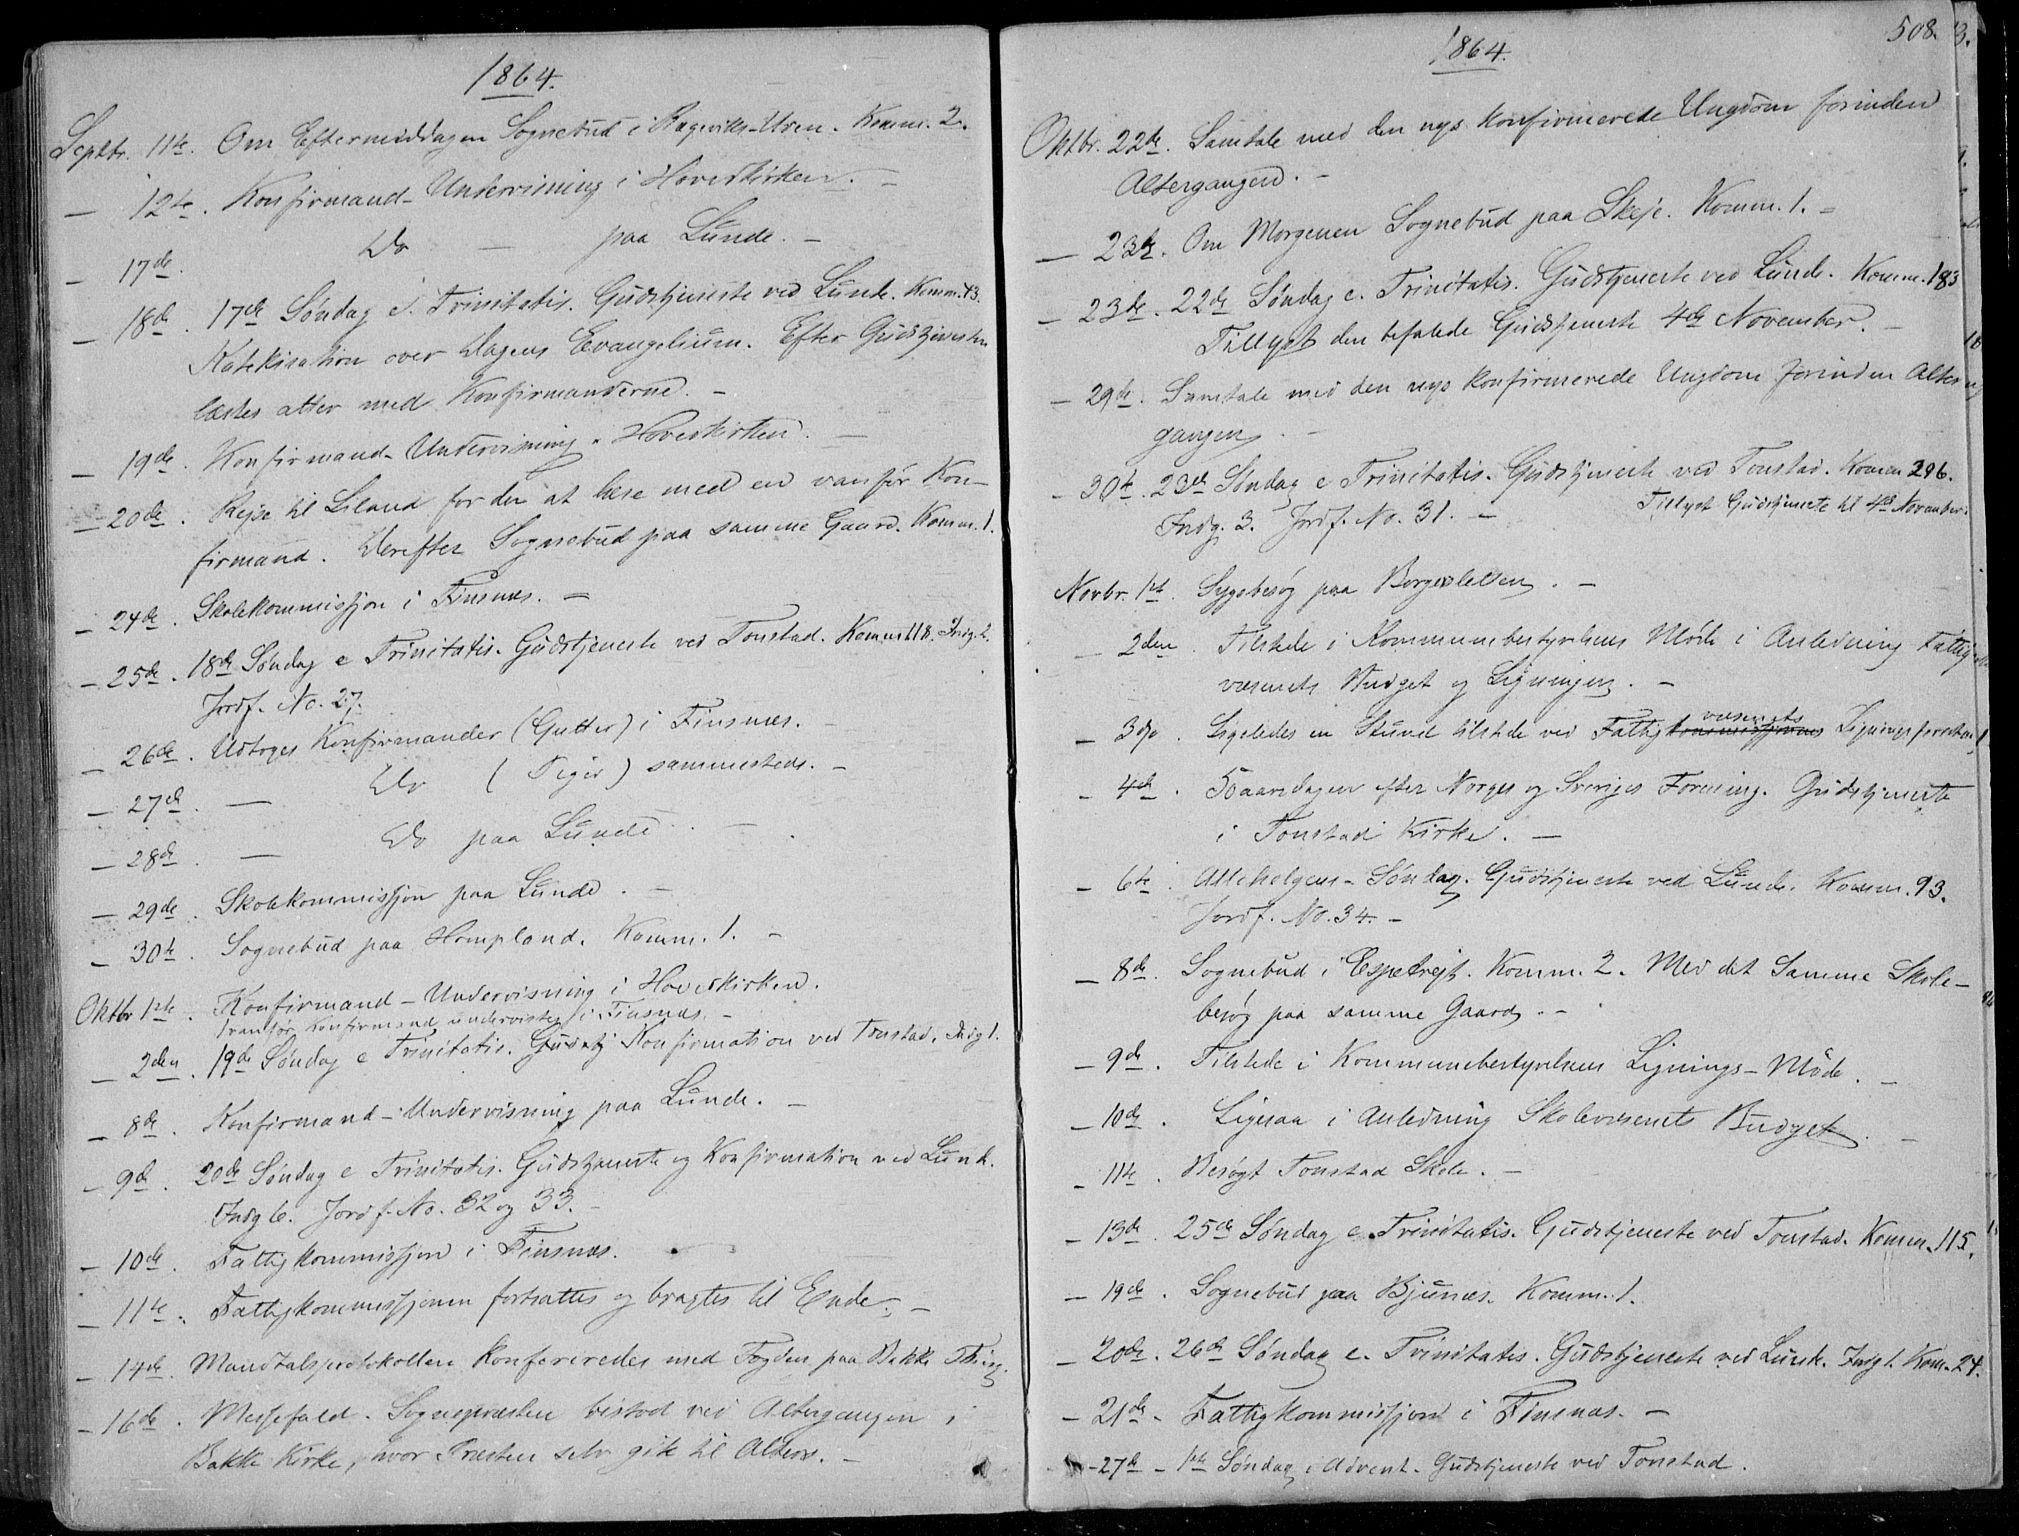 1864.
Septbr. 11te. Om Eftermiddagen Sognebud i Ragevids-Uren. Komm. 2.
— 12te. Konfirmand-Undervisning i Hovedkirken. —
— 17de. Do — paa Lunde. —
— 18de. 17de Søndag e. Trinitatis. Gudstjeneste ved Lunde. Komm. 73.
Katekisation over Dagens Evangelium. Efter Gudstjenesten
læstes atter med Konfirmanderne. —
— 19de. Konfirmand-Undervisning i Hovedkirken. —
— 20de. Rejse til Liland for der at læse med en vanfør Kon-
firmand. Derefter Sognebud paa samme Gaard. Komm. 1.
— 24de. Skolekommissjon i Finsnæs. —
— 25de. 18de Søndag e Trinitatis. Gudstjeneste ved Tonstad. Komm 118. Indg. 2.
Jordf. No. 27.
— 26de. Udtoges Konfirmander (Gutter) i Finsnæs. —
— 27de. — Do (Piger) sammesteds. —
— 28de. — Do paa Lunde. —
— 29de. Skolekommissjon paa Lunde. —
— 30te. Sognebud paa Hompland. Komm. 1. —
Oktbr 1ste. Konfirmand-Undervisning i Hovedkirken.
1 vanfør Konfirmand undervistes i Finsnæs. —
— 2den. 19de Søndag e Trinitatis. Gudstj Konfirmation ved Tonstad. Indg 1.
— 8de. Konfirmand-Undervisning paa Lunde. —
— 9de. 20de Søndag e Trinitatis. Gudstjeneste og Konfirmation ved Lunde.
Indg 6. Jordf. No. 32 og 33. —
— 10de. Fattigkommissjon i Finsnæs.
— 11te. Fattigkommissjonen fortsattes og bragtes til Ende. —
— 14de. Mandtalsprotokollen konfereredes med Fogden paa Bakke Thing.
— 16de. Messefald. Sognepræsten bistod ved Altergangen i
Bakke Kirke, hvor Præsten selv gik til Alters. —
508.
1864.
Oktbr. 22de. Samtale med den nys konfirmerede Ungdom forinden
Altergangen. —
— 23de. Om Morgenen Sognebud paa Skeje. Komm. 1. —
— 23de. 22de Søndag e. Trinitatis. Gudstjeneste ved Lunde. Komm. 183
Tillyst den befalede Gudstjeneste 4de November. —
— 29de. Samtale med den nys konfirmerede Ungdom forinden Alter
gangen. —
— 30te. 23de Søndag e Trinitatis. Gudstjeneste ved Tonstad. Komm 296.
Indg. 3. Jordf. No. 31. — Tillyst Gudstjeneste til 4de November.
Novbr. 1ste. Sygebesøg paa Borgesletten. —
— 2den. Tilstede i Kommunebestyrelsens Møde i Anledning Fattig
væsenets Budget og Ligningen. —
— 3dje. Ligeledes en Stund tilstede ved Fattigvæsenets Ligningsforretn
— 4de. 50aarsdagen efter Norges og Sveriges Forening. Gudstjeneste
i Tonstad Kirke. —
— 6te. Allehelgens-Søndag. Gudstjeneste ved Lunde. Komm. 93.
Jordf. No. 34. —
— 8de. Sognebud i Espetvejt. Komm. 2. Med det Samme Skole-
besøg paa samme Gaard. —
— 9de. Tilstede i Kommunebestyrelsens Lignings-Møde. —
— 10de. Ligesaa i Anledning Skolevæsenets Budget. —
— 11te. Besøgt Tonstad Skole. —
— 13de. 25de Søndag e. Trinitatis. Gudstjeneste ved Tonstad. Komm. 115.
— 19de. Sognebud paa Bjunæs. Komm. 1.
— 20de. 26de Søndag e. Trinitatis. Gudstjeneste ved Lunde. Indg 1. Kom. 24.
— 21de. Fattigkommissjon i Finsnæs. —
— 27de — 1ste Søndag i Advent. Gudstjeneste ved Tonstad.